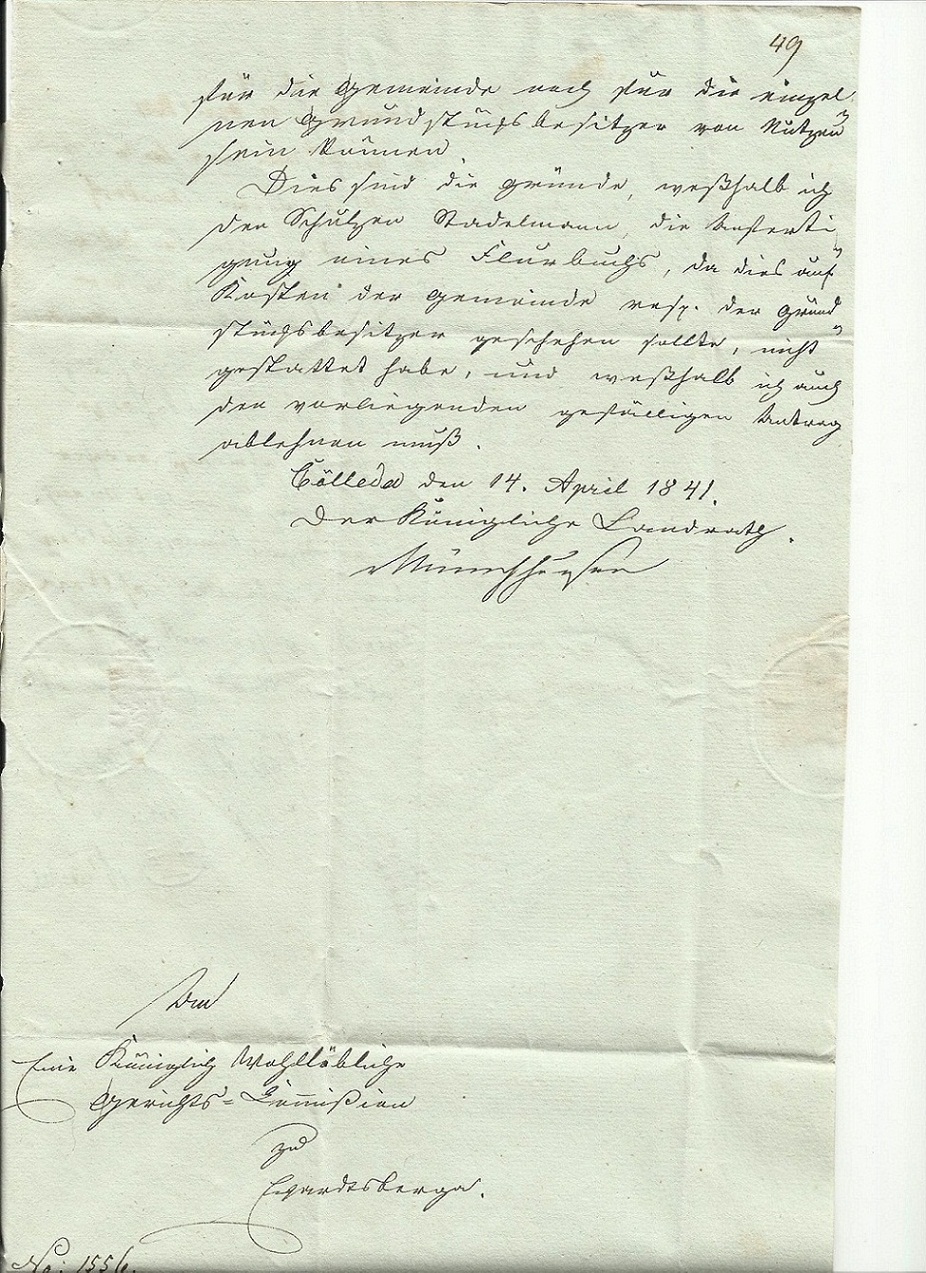 49
für die Gemeinde noch für die einzel-
nen Grundstücksbesitzer von Nutzen
sein können
Dies sind die Gründe, weßhalb ich
den Schulzen Stadelmann, die Anferti-
gung eines Flurbuchs, da dies auf
Kosten der Gemeinde resp. der Grund-
stücksbesitzer geschehen sollte, nicht
gestattet habe, und weßhalb ich auch
den vorliegenden gefälligen Antrag
ablehnen muß.
Cölleda den 14. April 1841.
Der Königliche Landrath.
Münchhausen
An
Eine Königlich Wohllöbliche
Gerichts-Commißion
zu
Eckardtsberga.
No: 1556.